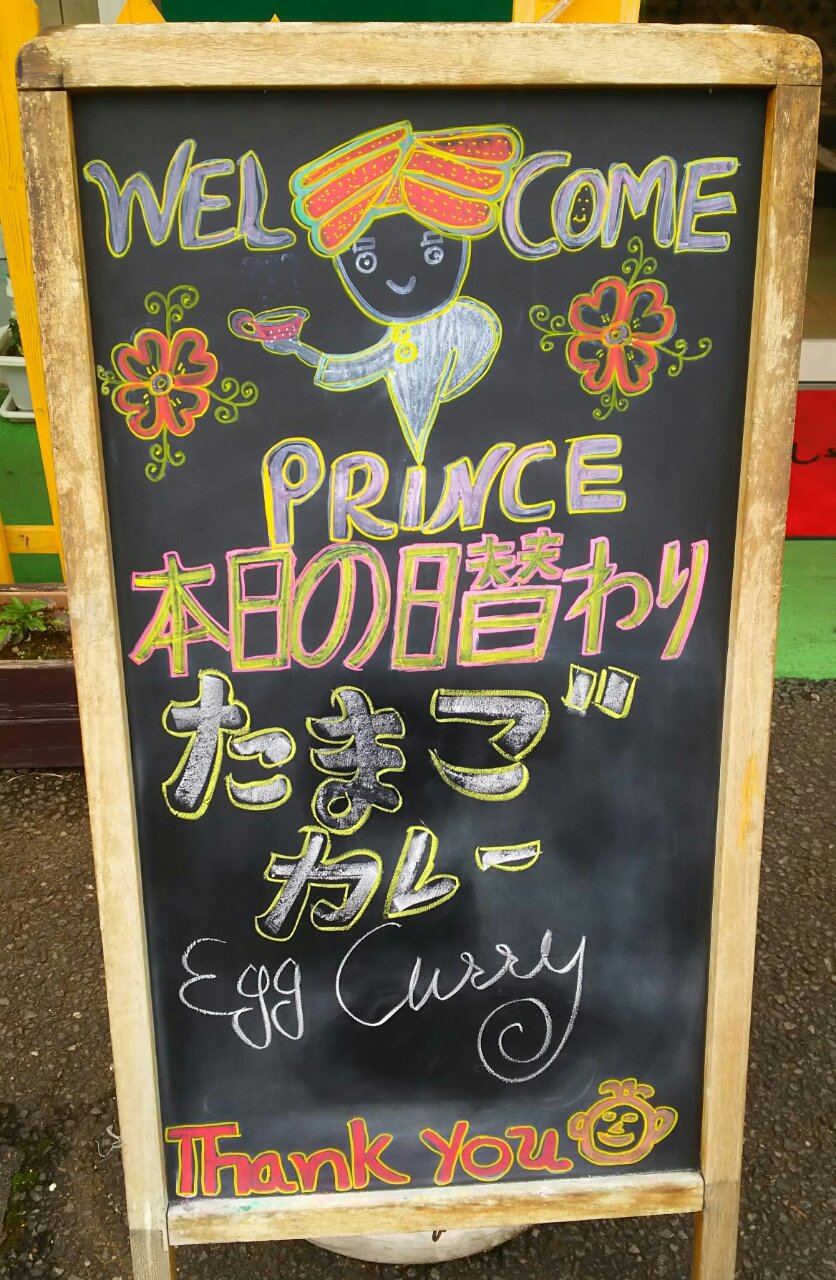 WELCOME
PRINCE
本日の日替わり
たまご
カレー
Egg Curry
Thank you